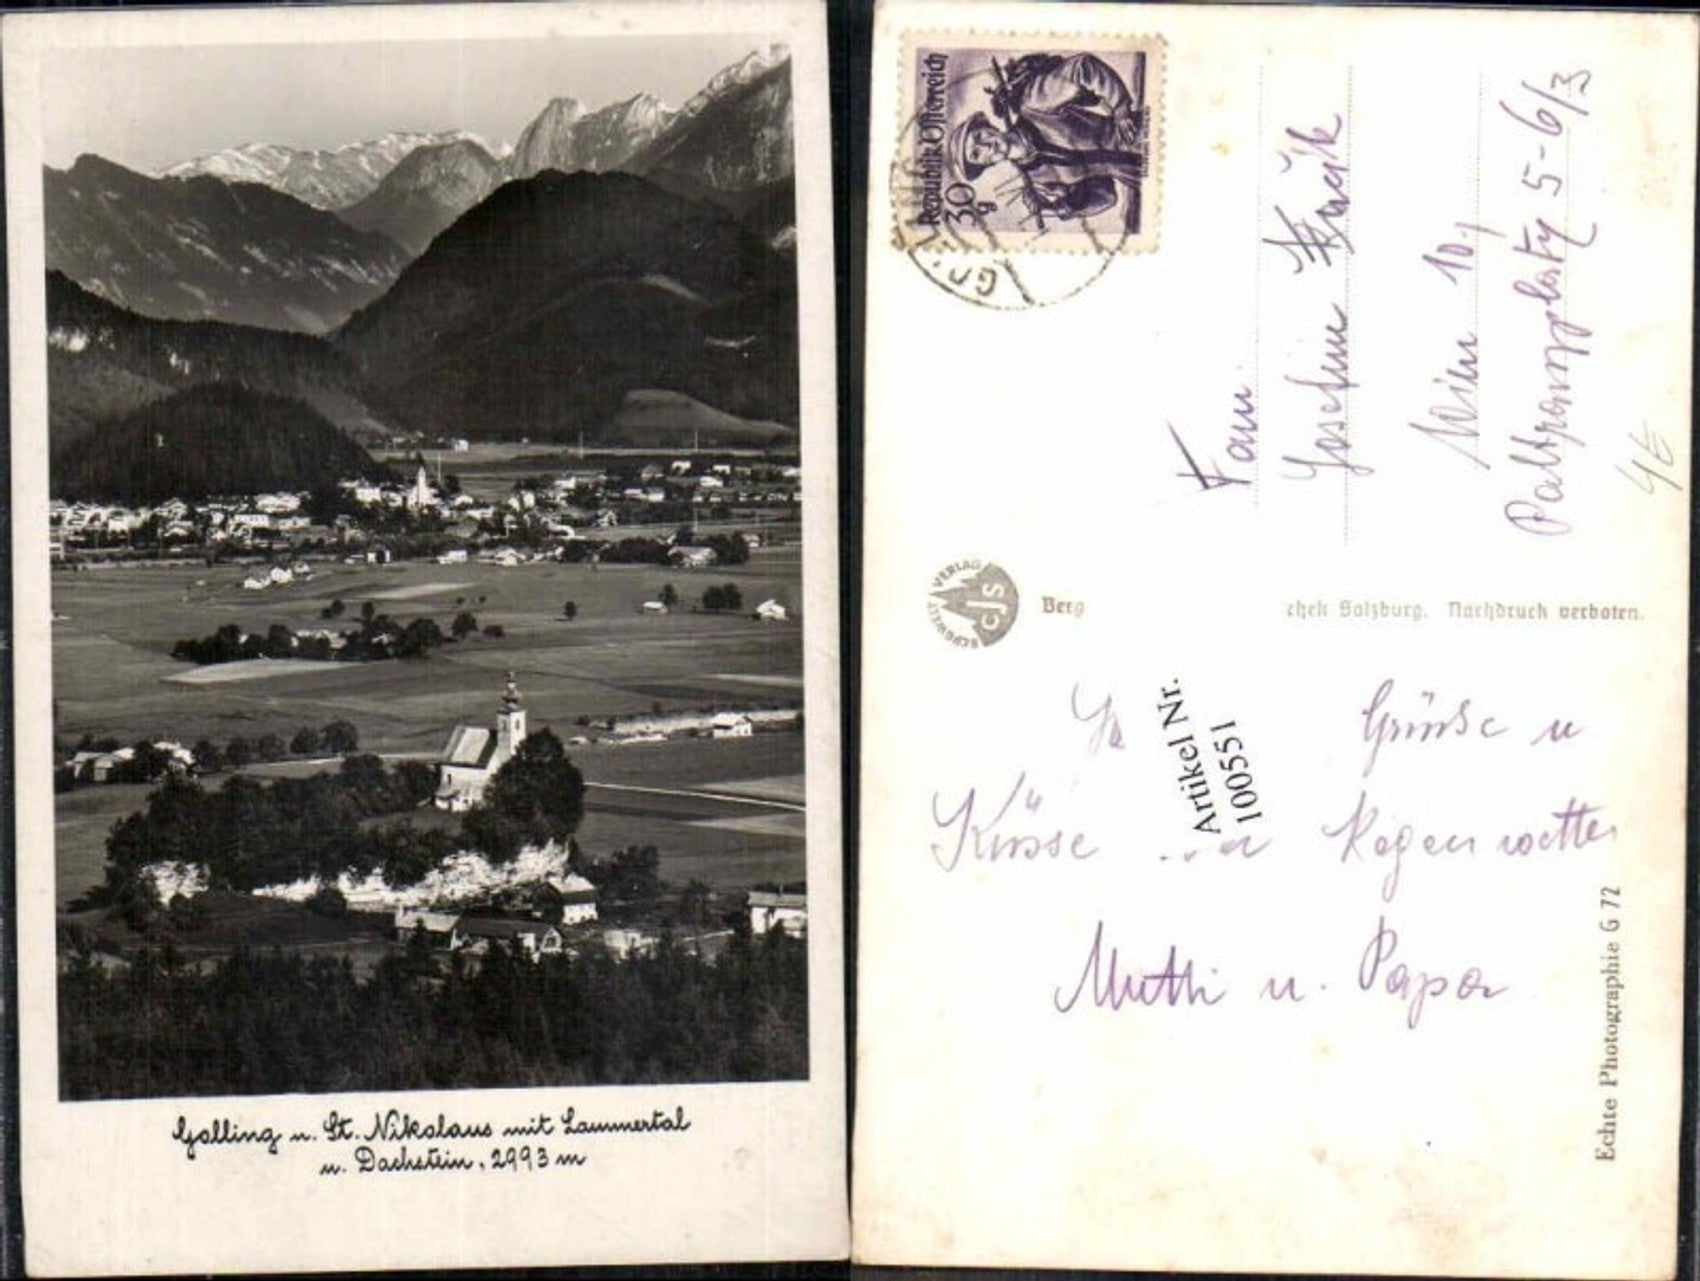 Golling u. St. Nikolaus mit Lammertal
u. Dachstein, 2993 m
Republik Österreich
30 g
Fam.
Josefine
Wien 10,
5-6/3
4€
BERGWELT VERLAG
CJS
Berg
chek Salzburg. Nachdruck verboten.
Artikel Nr.
100551
Grüsse u
Küsse Regenwetter
Mutti u. Papa
Echte Photographie G 72